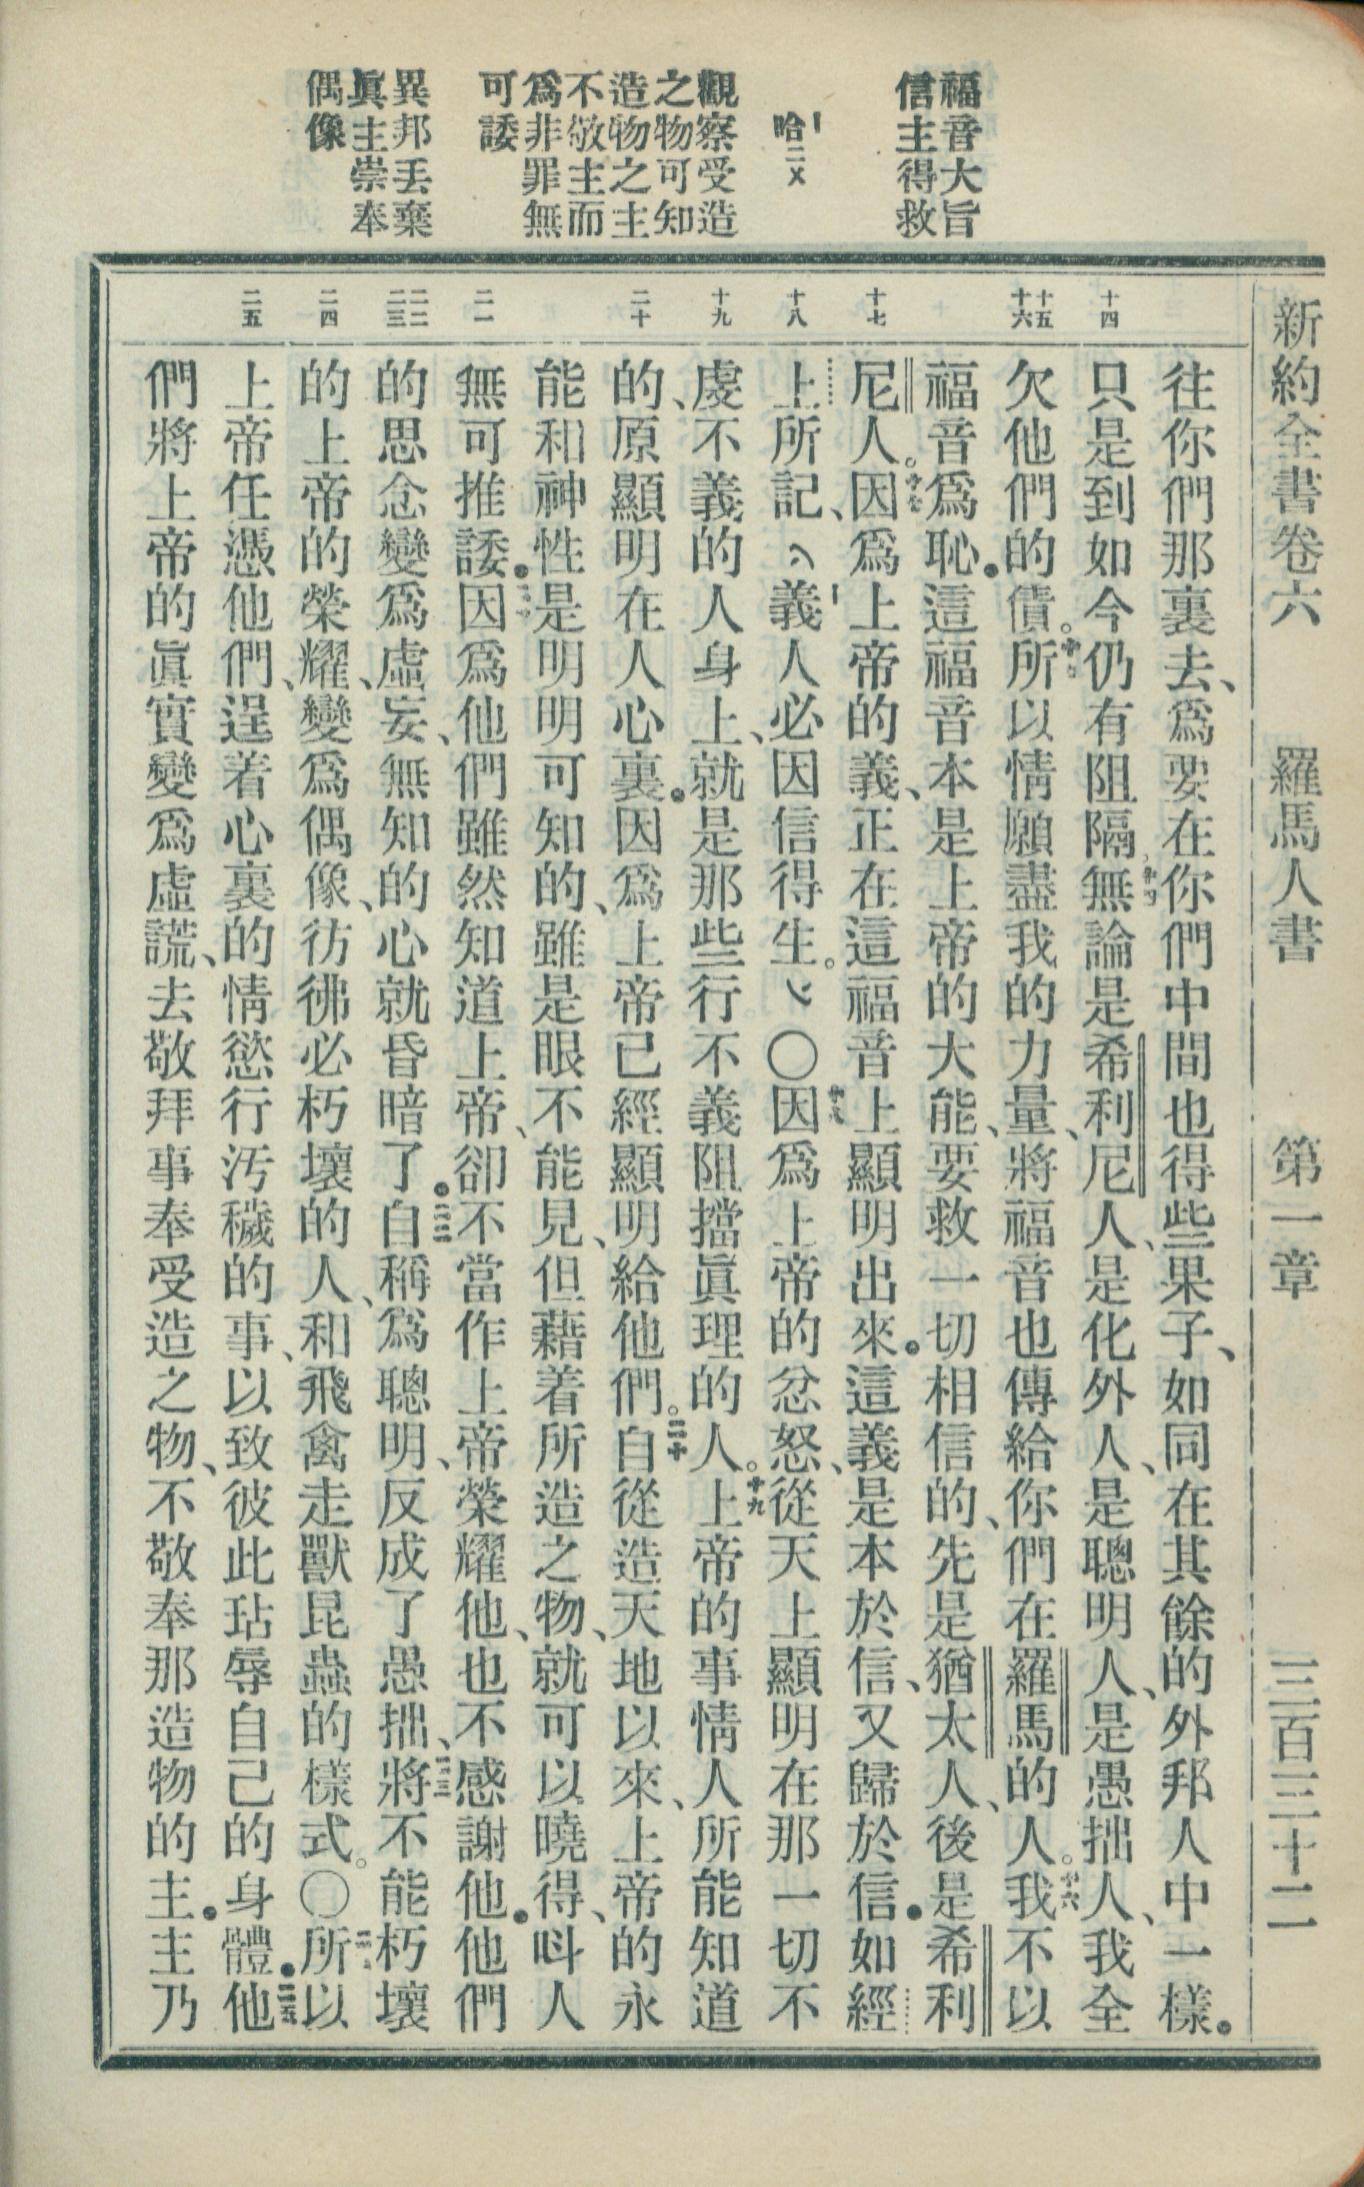 新約全書卷六 羅馬人書 第一章 三百三十二
福音大旨
信主得救
哈二乂
觀察受造
之物可知
造物之主
不敬主而
爲非罪無
可諉
異邦丟棄
眞主崇奉
偶像
十四
十五
十六
十七
十八
十九
二十
二一
二二
二三
二四
二五
往你們那裏去、爲要在你們中間也得些果子、如同在其餘的外邦人中一樣。
只是到如今仍有阻隔、十四無論是希利尼人、是化外人、是聰明人、是愚拙人、我全
欠他們的債。十五所以情願盡我的力量、將福音也傳給你們在羅馬的人。十六我不以
福音爲恥。這福音本是上帝的大能、要救一切相信的、先是猶太人、後是希利
尼人。十七因爲上帝的義、正在這福音上顯明出來。這義是本於信、又歸於信。如經
上所記、義人必因信得生。〇十八因爲上帝的忿怒、從天上顯明在那一切不
虔不義的人身上、就是那些行不義阻擋眞理的人。十九上帝的事情人所能知道
的、原顯明在人心裏。因爲上帝已經顯明給他們。二十自從造天地以來、上帝的永
能和神性是明明可知的、雖是眼不能見、但藉着所造之物、就可以曉得、呌人
無可推諉。二一因爲他們雖然知道上帝、卻不當作上帝榮耀他、也不感謝他。他們
的思念變爲虛妄、無知的心就昏暗了。二二自稱爲聰明、反成了愚拙、二三將不能朽壞
的上帝的榮耀、變爲偶像、彷彿必朽壞的人、和飛禽走獸昆蟲的樣式。〇二四所以
上帝任憑他們、逞着心裏的情慾行汚穢的事、以致彼此玷辱自己的身體。二五他
們將上帝的眞實變爲虛謊、去敬拜事奉受造之物、不敬奉那造物的主。主乃